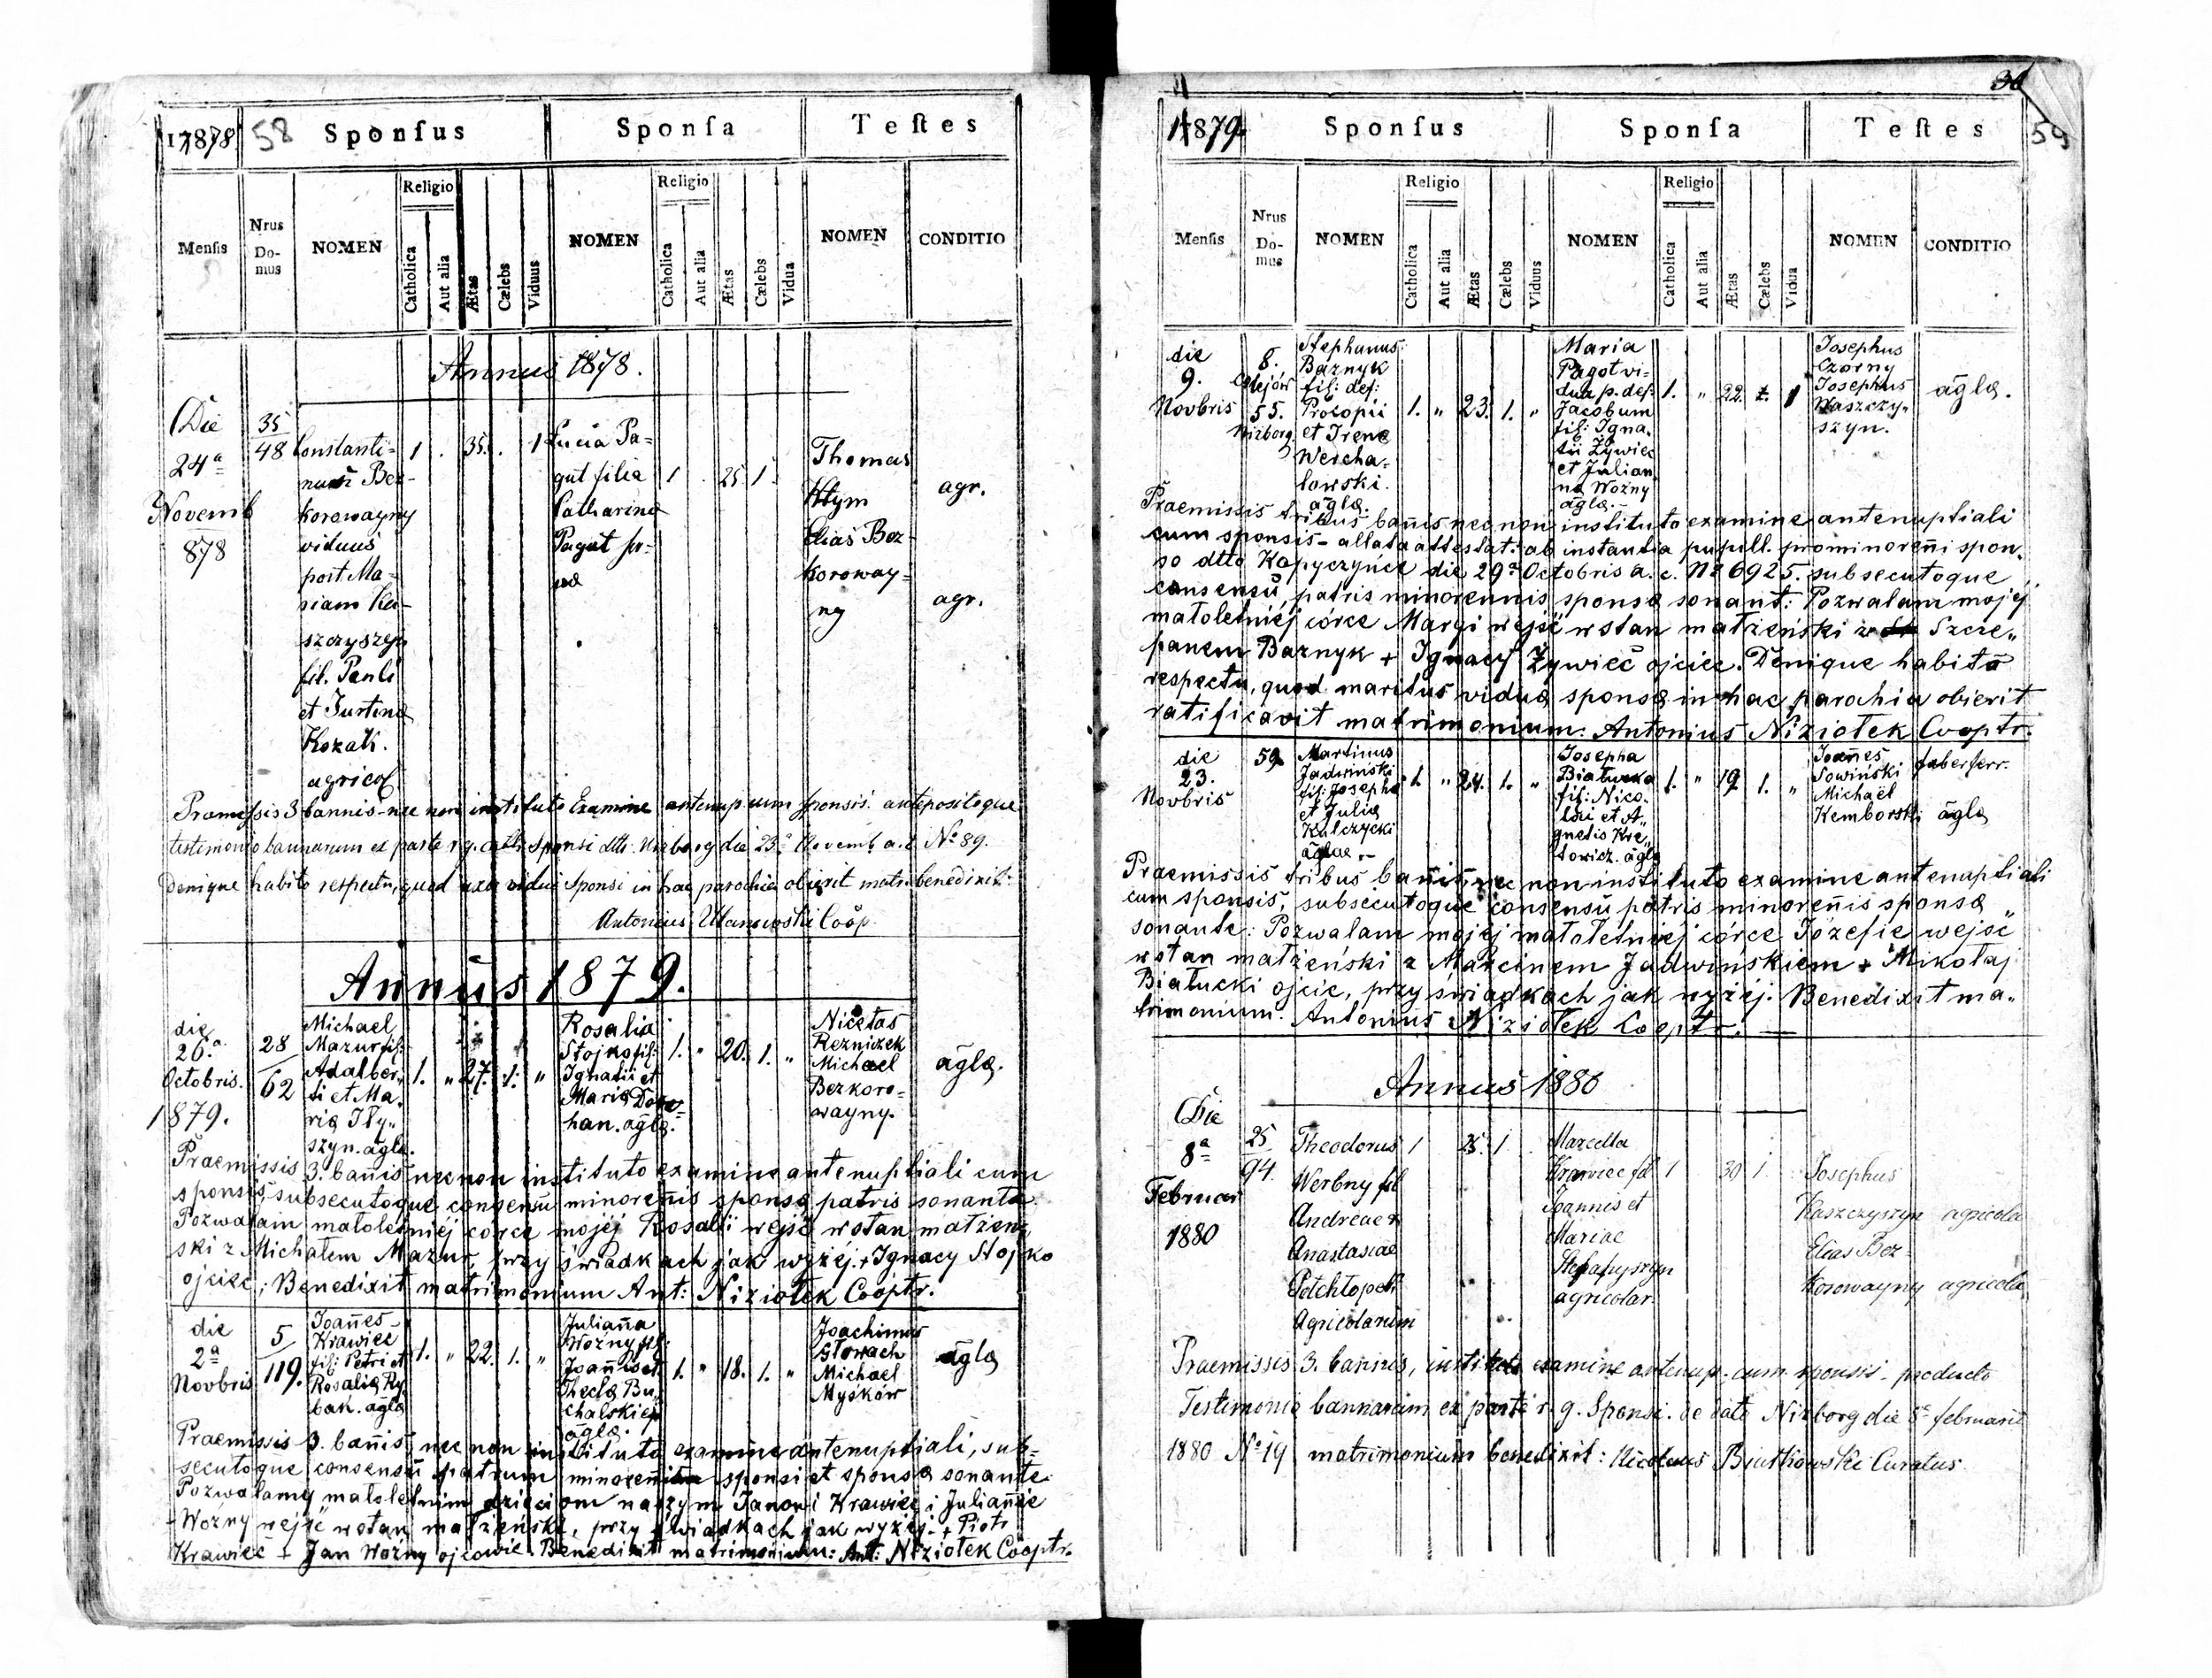 17878 58 Sponsus Sponsa Testes
Mensis Nrus Domus NOMEN Religio Catholica Aut alia Ætas Cælebs Viduus NOMEN Religio Catholica Aut alia Ætas Cælebs Vidua NOMEN CONDITIO
Annus 1878.
Die
24a
Novemb
878
35
48
Constanti=
nus Bez-
korowayny
viduus
post Ma-
riam Ka-
szczyszyn
fil. Pauli
et Justina
Kozak.
agricol
1 . 35. . 1
Lucia Pa=
gut filia
Catharina
Pagut
1 . 25 1
Thomas
Kłym
Elias Bez-
koroway=
ny
agr.
agr.
Praemissis 3 bannis nec non instituto Examine antenup. cum sponsis antepositoque
testimonio bannorum ex parte r. g. Sponsi Nizborg die 23a Novemb a. c. No 89.
Denique habito respectu, quod uxor vidui Sponsi in hac parochia obierit matr. benedixit:
Antonius Coop.
Annus 1879.
die
26.a
Octobris.
1879.
28
62
Michael
Mazur fil:
Adalber„
ti et Ma„
ria Iły„
szyn. agla.
1. „ 27. 1. „
Rosalia
Stojko fil:
Ignatii et
Maria
han. agla.
1. „ 20. 1. „
Nicetas
Rezniczek
Michael
Bezkoro=
wayny.
agla.
Praemissis 3. banis nec non instituto examine antenuptiali cum
sponsis, subsecutoque consensu minorenis sponsa patris sonante
Pozwalam małoletniéj córce mojéj Rosalii wejść w stan małżeń
ski z Michałem Mazur, przy świadkach jak wyżéj. + Ignacy Stojko
ojciec; Benedixit matrimonium Ant: Niziołek Cooptr.
die
2a
Novbris
5
119.
Joannes
Krawiec
fil: Petri et
Rosalia Ry
bak. agla
1. „ 22. 1. „
Julianna
Woźny fil:
Joannis et
Thecla Bu„
chalskiej
agla.
1. „ 18. 1. „
Joachimus
Słowach
Michael
Myśków
agla
Praemissis 3. banis nec non instituto examine antenuptiali, sub=
secutoque consensu patrum minorenium sponsi et sponsa sonante
Pozwalamy małoletnim dzieciom naszym Janowi Krawiec i Juliannie
Woźny wejść w stan małżeński, przy świadkach jak wyżéj. + Piotr
Krawiec + Jan Woźny ojcowie. Benedixit matrimonium: Ant: Niziołek Cooptr.
36
1879. Sponsus Sponsa Testes 59
Mensis Nrus Domus NOMEN Religio Catholica Aut alia Ætas Cælebs Viduus NOMEN Religio Catholica Aut alia Ætas Cælebs Vidua NOMEN CONDITIO
die
9.
Novbris
8.
55.
Nizborg
Stephanus
Baznyk
fil: def:
Procopii
et Irena
Wercha„
lowski.
agla.
1. „ 23. 1. „
Maria
Pagot vi=
dua p. def:
Jacobum
fil: Igna„
tii Żywiec
et Julian
na Woźny
agla.
1. „ 22. 1
Josephus
Czorny
Josephus
Waszczy„
szyn.
agla.
Praemissis tribus banis nec non instituto examine antenuptiali
cum sponsis - allata attestat. ab instantia pupill. pro minoreni spon„
so dtto Kopyczyńce die 29a Octobris a. c. No 6925. subsecutoque
consensu, patris minorennis sponsa sonant: Pozwalam mojéj
małoletniéj córce Maryi wejść w stan małżeński z Szcze„
panem Baznyk + Ignacy Żywiec ojciec. Denique habito
respectu, quod maritus vidua sponsa in hac parochia obierit
ratificavit matrimonium: Antonius Niziołek Cooptr.
die
23.
Novbris
59
Martinus
Jadwiński
fil: Josephi
et Julia
Kulczycki
aglae.
1. „ 24. 1. „
Josepha
Białucka
fil: Nico„
lai et A„
gnetis Kre„
towicz. agla
1. „ 19 1. „
Joannes
Sowiński
Michael
Kemborski
faber ferr.
agla
Praemissis tribus banis, nec non instituto examine antenuptiali
cum sponsis, subsecutoque consensu patris minorenis sponsa
sonante: Pozwalam mojéj małoletniéj córce Józefie wejść
w stan małżeński z Marcinem Jadwińskiem + Mikołaj
Białucki ojcie, przy świadkach jak wyżéj. Benedixit ma„
trimonium. Antonius Niziołek Cooptr.
Annus 1880
Die
8a
Februar
1880
25
94
Theodorus
Werbny fil
Andreae et
Anastasiae
Agricolarum
1 25. 1
Marcella
Krawiec fil
Joannis et
Mariae
Stefanyszyn
agricolar.
1 30 1
Josephus
Kaszczyszyn agricola
Elias Bez-
korowayny agricola
Praemissis 3. bannis, instituto examine antenup. cum sponsis - producto
Testimonio bannorum ex parte r. g. Sponsi. de dato Nizborg die 8a februarii
1880 No 19 matrimonium benedixit: Nicolaus Curatus.